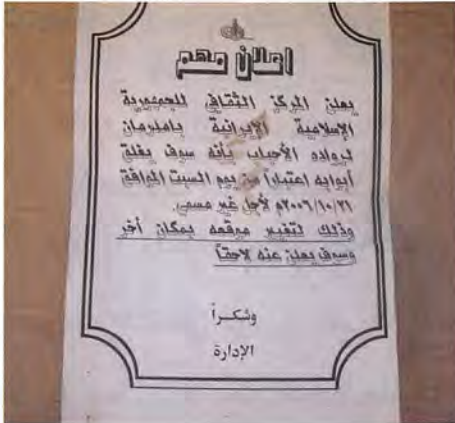 اعلان مهم
يعلن المركز الثقافي للجمهورية
الإسلامية الإيرانية بامدرمان
لرواده الأحباب بأنه سوف يغلق
أبوابه اعتباراً من يوم السبت الموافق
٢٠٠٦/١٠/٢١م لأجل غير مسمى.
وذلك لتغير موقعه بمكان أخر
وسوف يعلن عنه لاحقاً
وشكراً
الإدارة